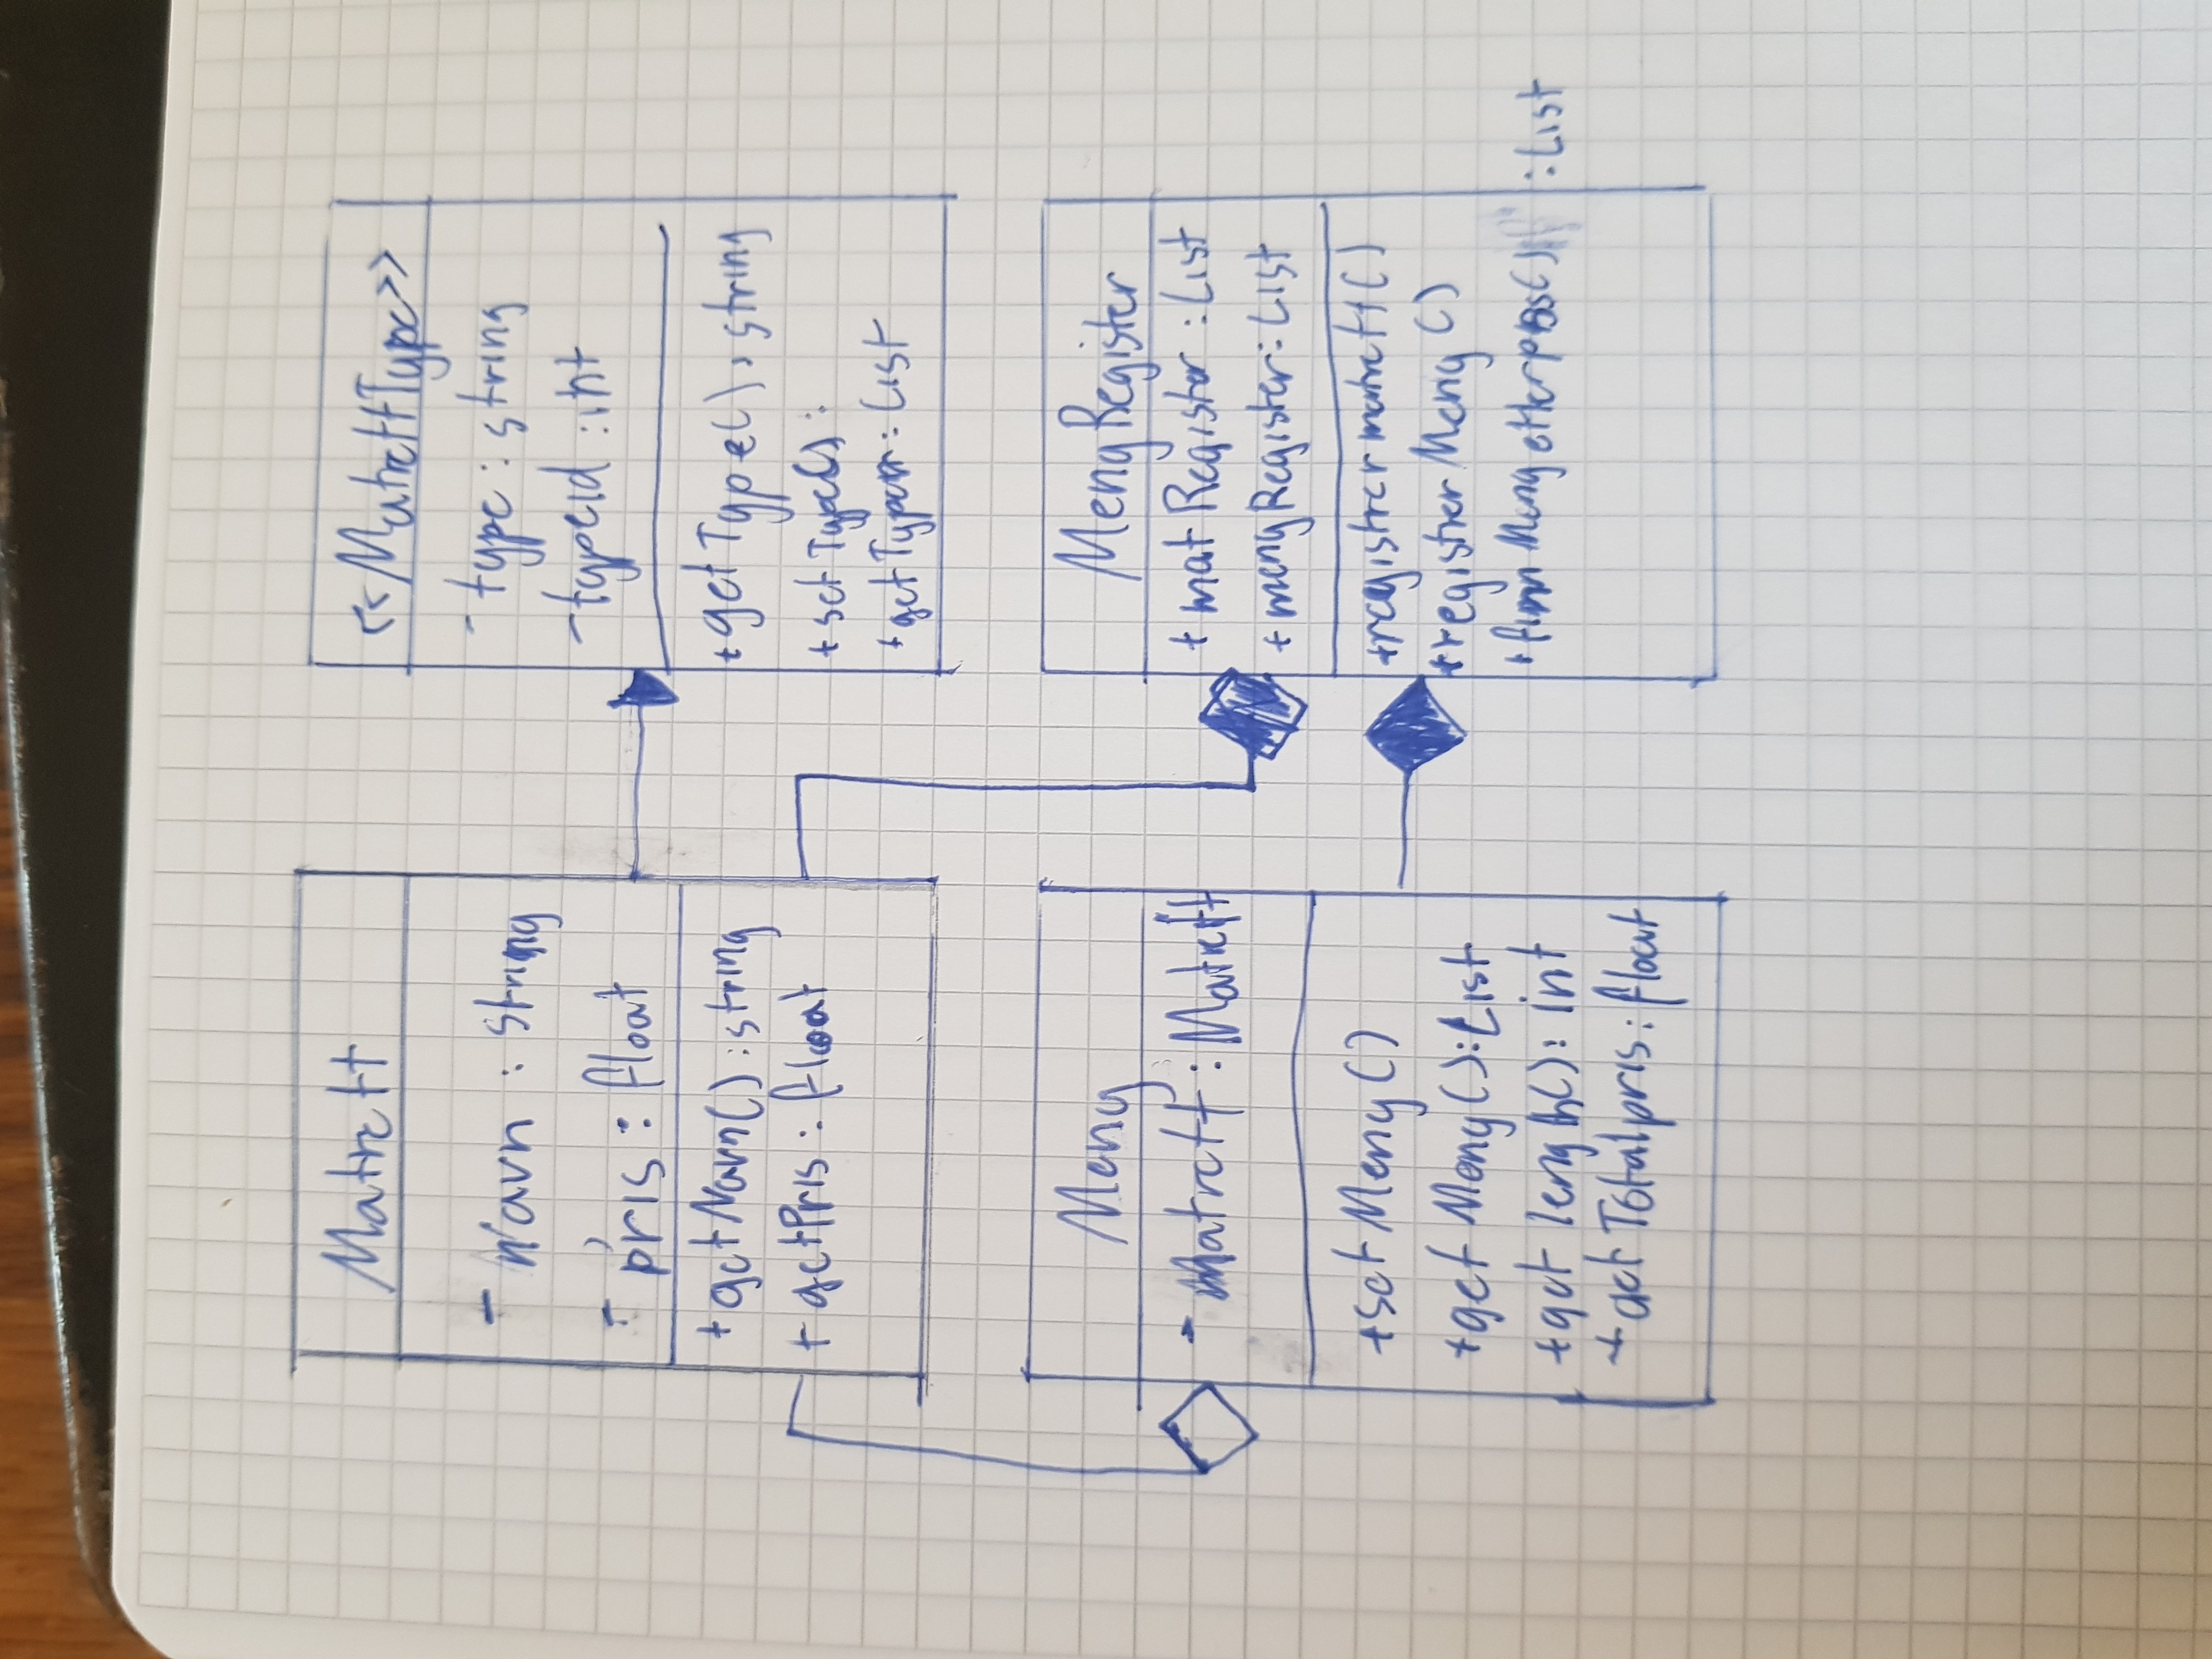 Matrett
- Navn : string
- pris : float
+ getNavn() : string
+ getPris : float
<<MatrettType>>
- type : string
- typeid : int
+ getType() : string
+ set Type() :
+ get Typer : List
Meny
- Matrett : Matrett
+ set Meny ()
+ get Meny () : List
+ get length() : int
+ get Totalpris : float
MenyRegister
+ mat Register : List
+ meny Register : List
+ registrer matrett ()
+ registrer Meny ()
+ finn Meny etter pris() : List